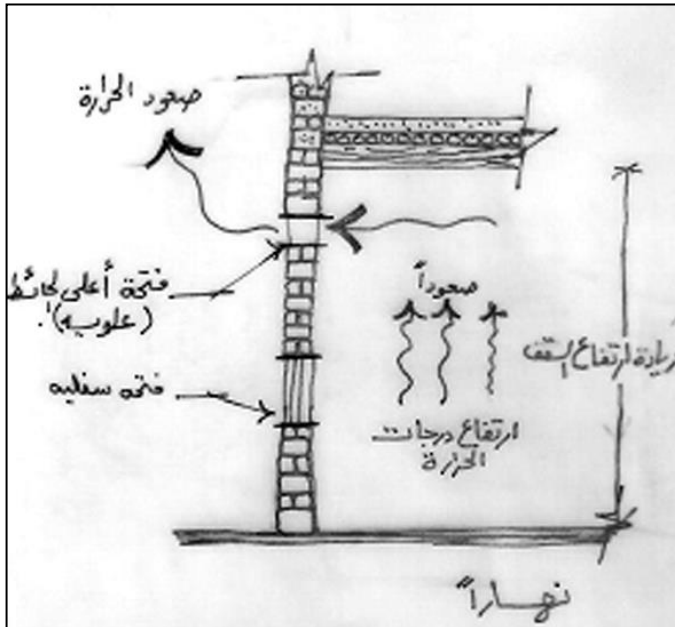 صعود الحرارة
فتحة أعلى لحائط
(علويه).
فتحه سفليه
صعوداً
ارتفاع درجات
الحرارة
زيادة ارتفاع السقف
نهاراً